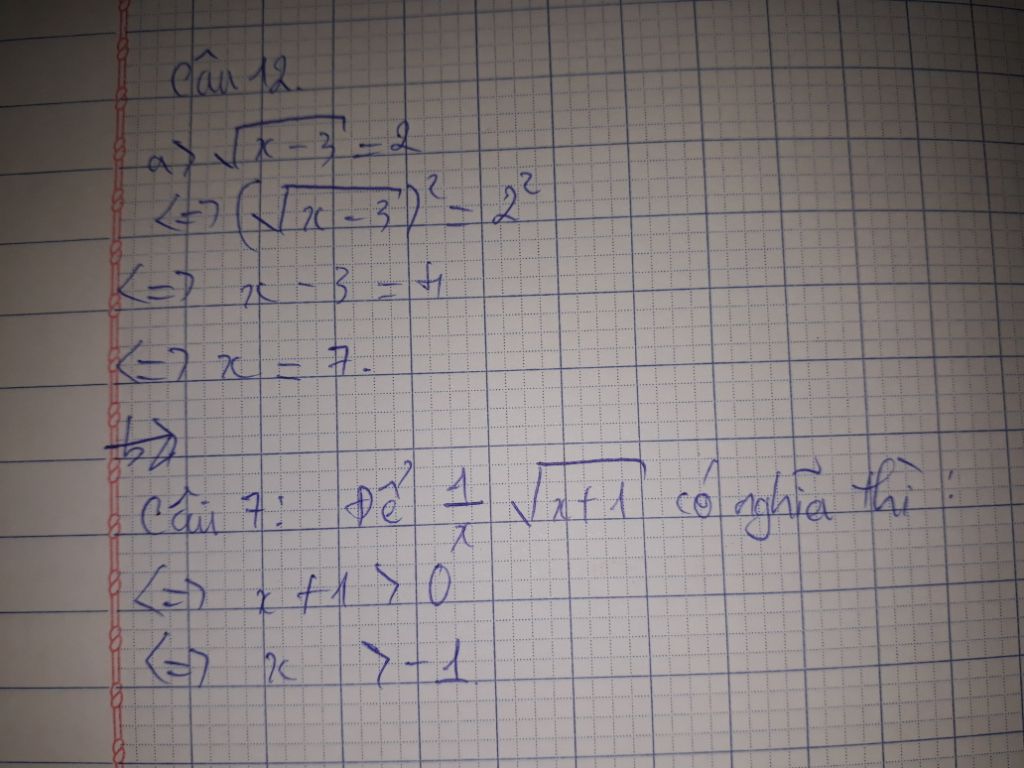 Câu 12.
a) √(x - 3) = 2
<=> (√(x - 3))² = 2²
<=> x - 3 = 4
<=> x = 7.
b)
Câu 7: Để 1/x √(x+1) có nghĩa thì:
<=> x + 1 > 0
<=> x > -1